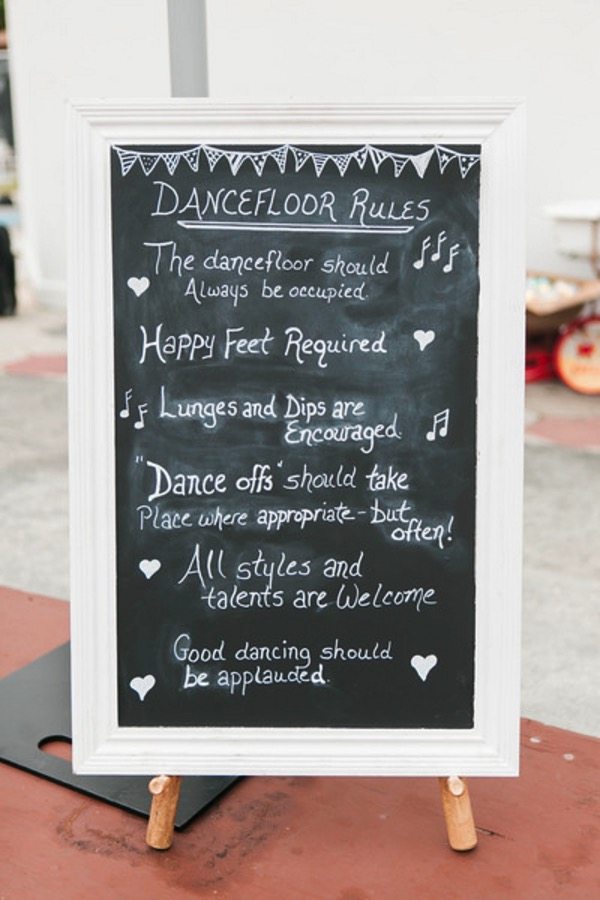 DANCEFLOOR RULES
The dancefloor should
Always be occupied.
Happy Feet Required
Lunges and Dips are
Encouraged.
"Dance offs" should take
Place where appropriate - but
often!
All styles and
talents are Welcome
Good dancing should
be applauded.